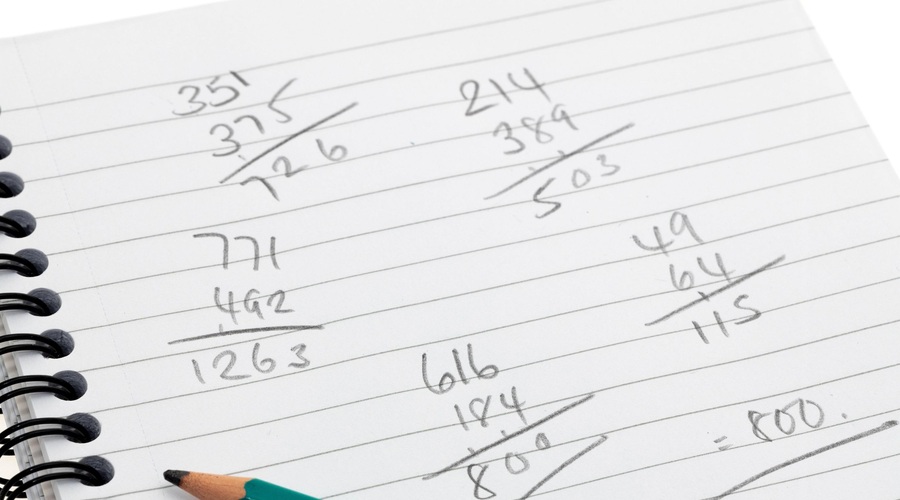 351
375
726
214
389
503
771
492
1263
49
64
115
616
184
800
= 800.